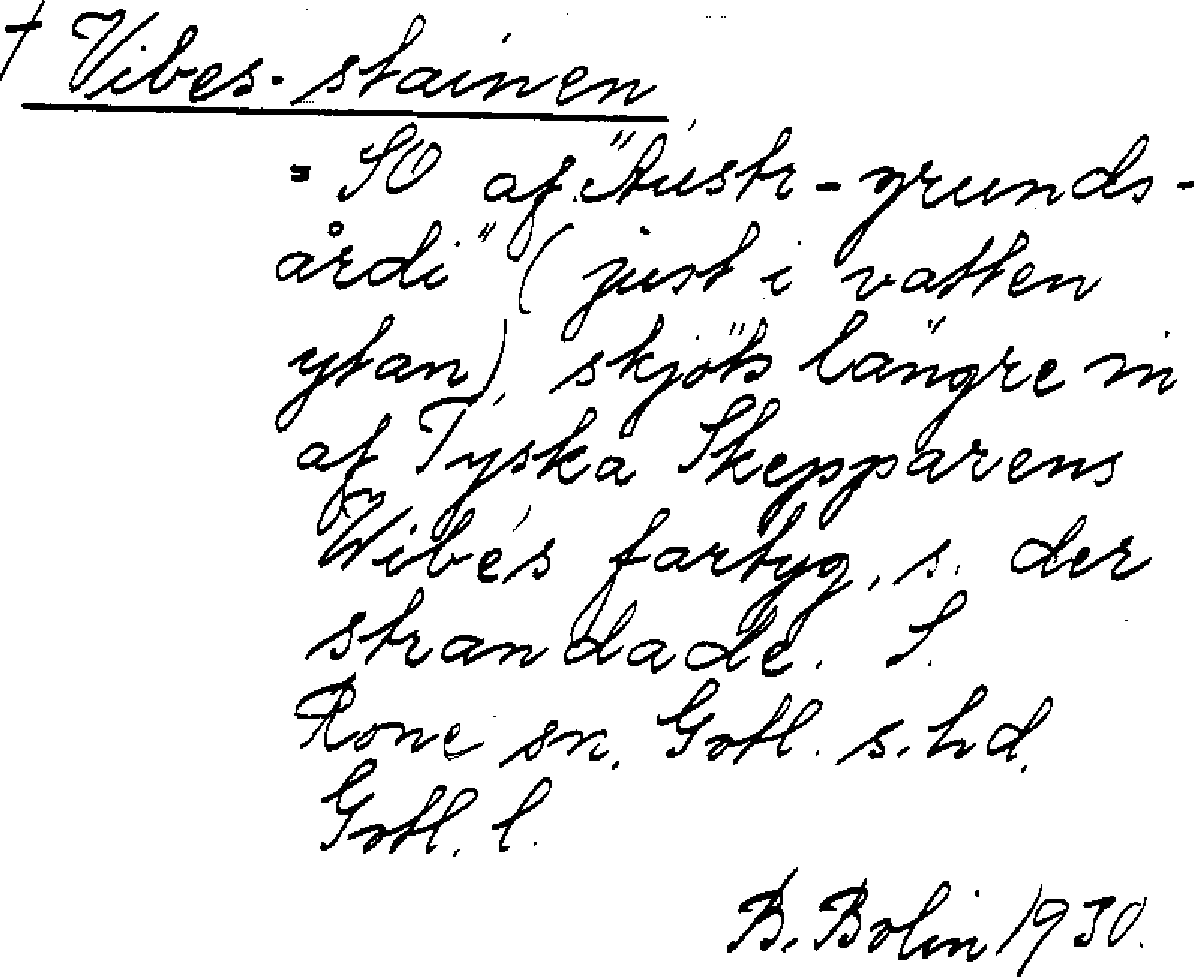 † Vibes-stainen
= SO af "Austr-grunds-
årdi" (just i vatten
ytan), skjöts längre in
af Tyska Skepparens
Wibes fartyg, s. der
strandade. S.
Rone sn. Gotl. s. hd.
Gotl. l.
B. Bolin 1930.